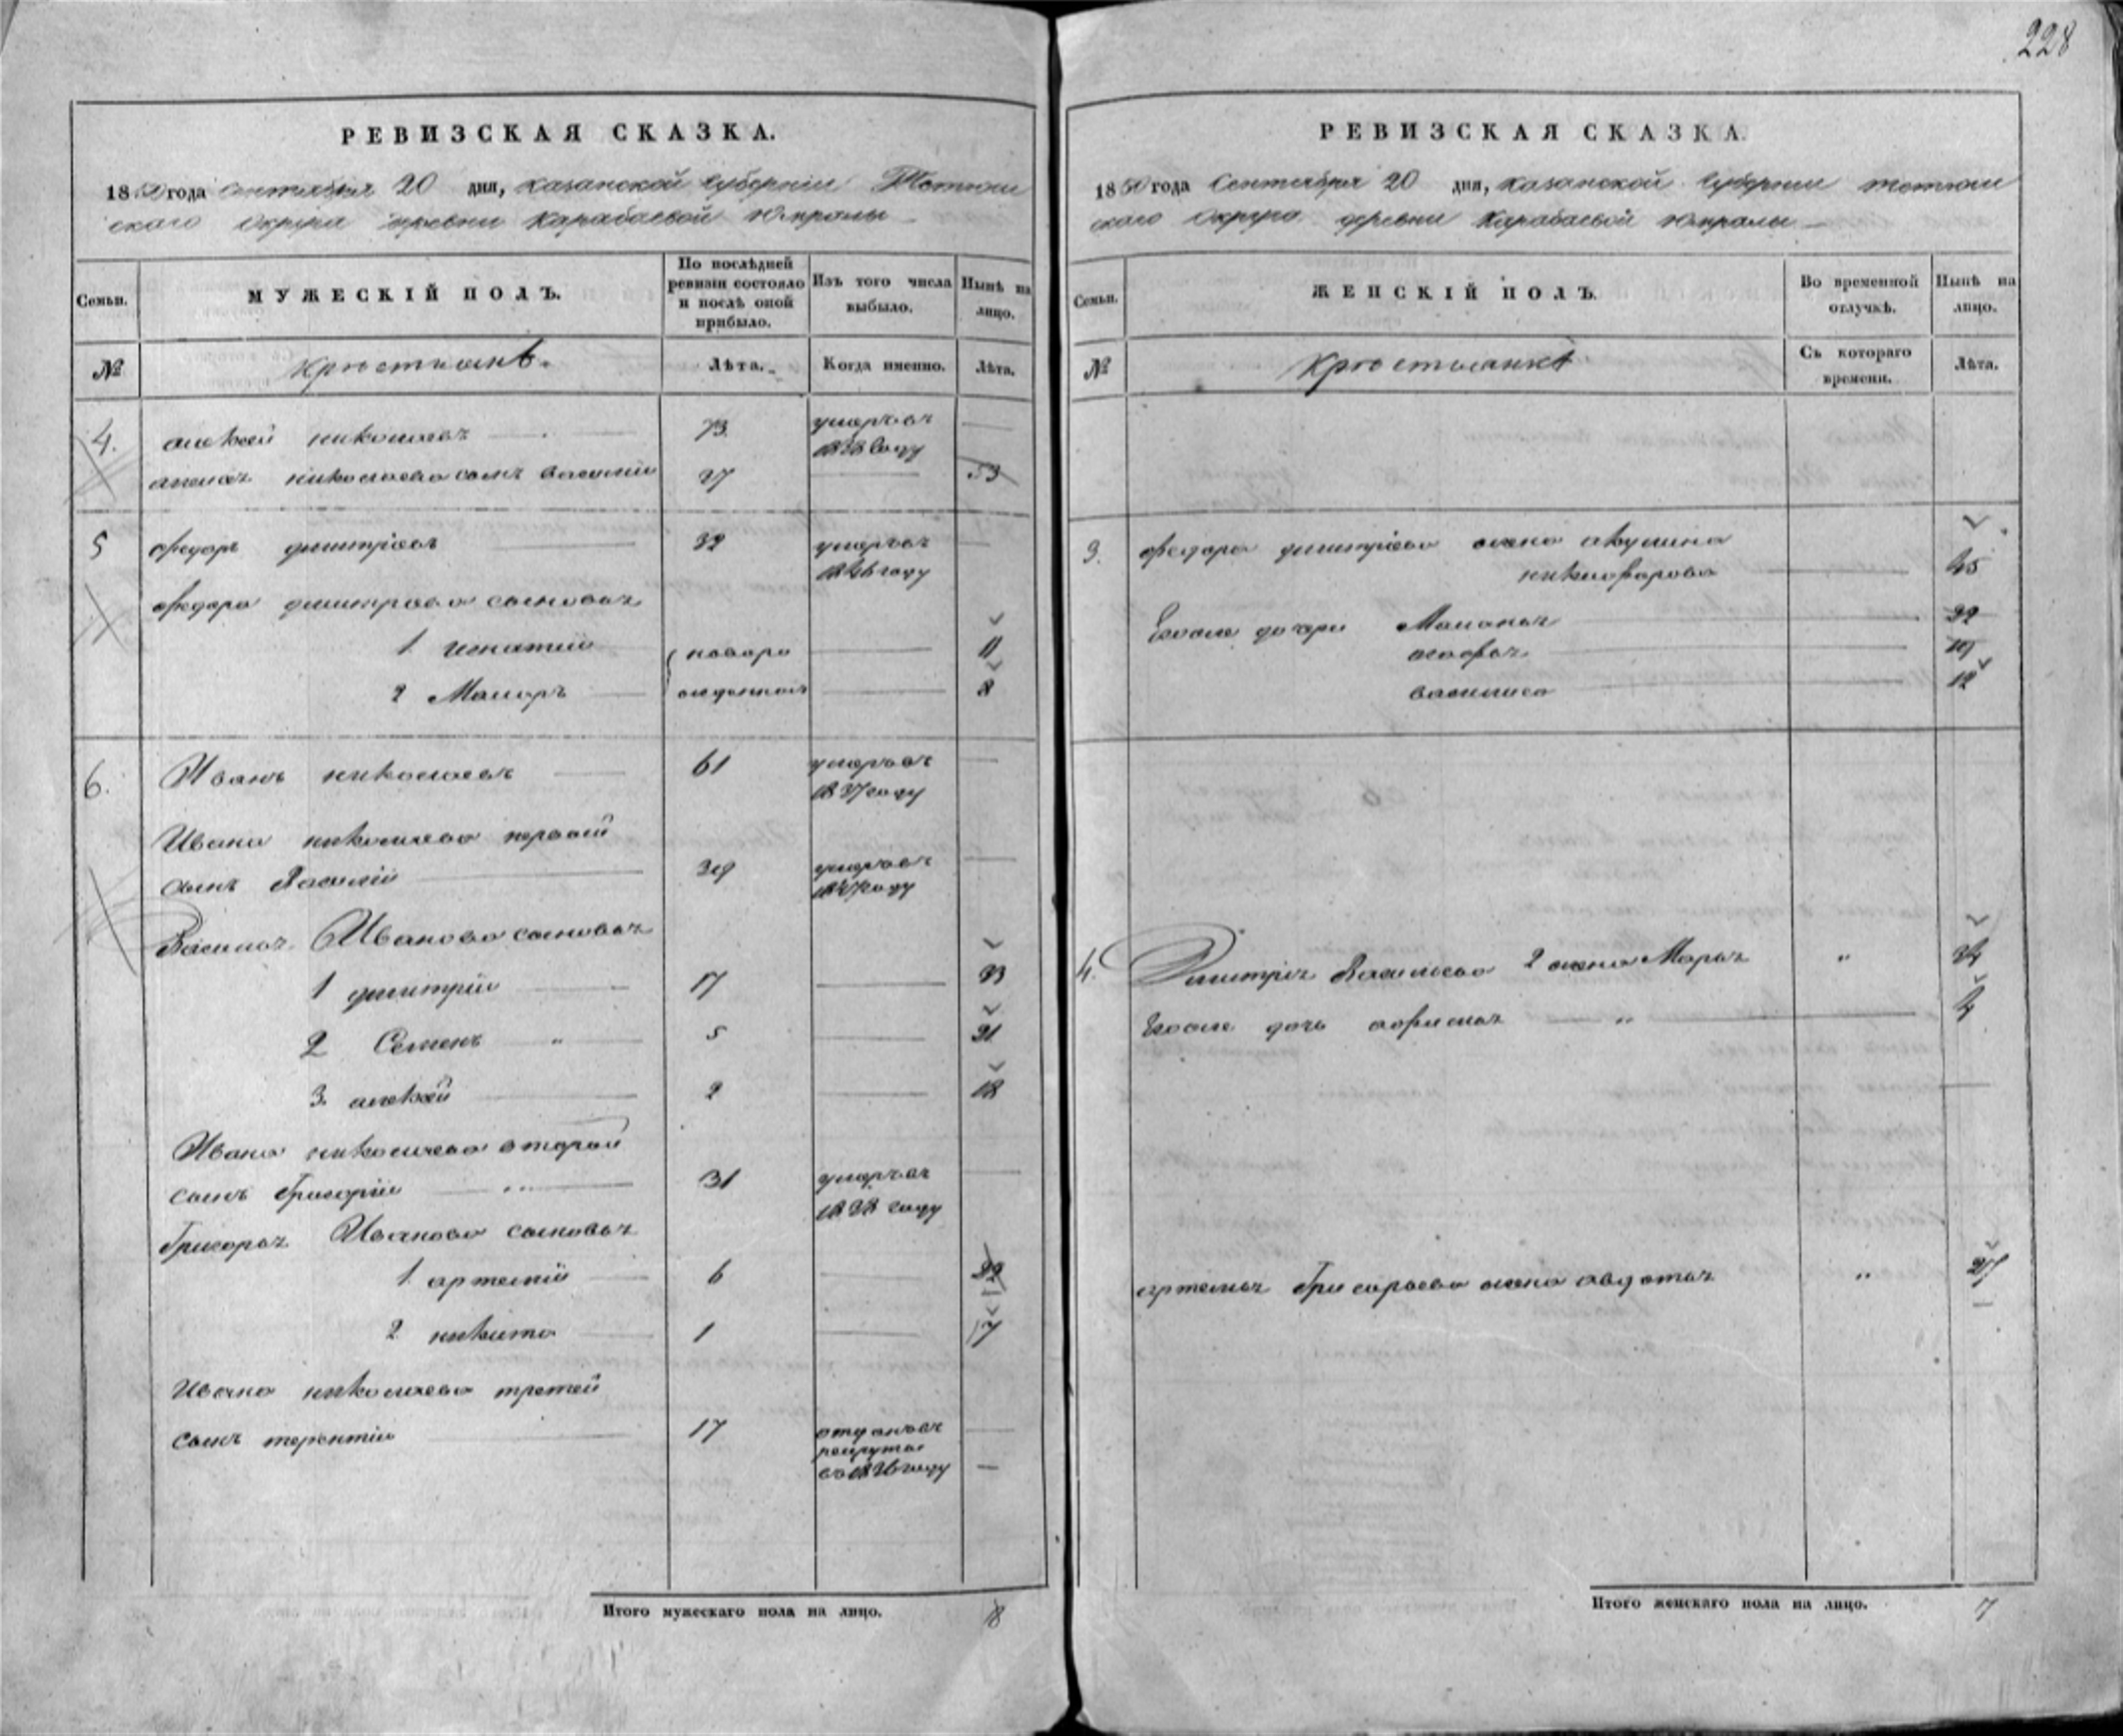 228
РЕВИЗСКАЯ СКАЗКА.
1850 года Сентября 20 дня, Казанской Губернии Тетюш
скаго Округа деревни Карабаевой Юмралы
Семьи.
МУЖЕСКІЙ ПОЛЪ.
По послѣдней ревизіи состояло и послѣ оной прибыло.
Изъ того числа выбыло.
Нынѣ на лицо.
№
Крестьянѣ.
Лѣта.
Когда именно.
Лѣта.
4. алексѣй николаевъ 73 умеръвъ
николаева сынъ василій 27 53
5 федоръ димитріевъ 32 умеръвъ
1846 году
федора димитріева сыновья
1 игнатій новоро 11
2 Макаръ жденныя 8
6. Иванъ николаевъ 61 умеръвъ
1837 году
Ивана николаева первый
сынъ Василій 39 умеръвъ
1837 году
Василья Иванова сыновья
1 димитрій 17 33
2 Семенъ " 5 21
3 алексѣй 2 18
Ивана николаева вторый
сынъ Григорій 31 умеръвъ
1838 году
Григорья Иванова сыновья
1 артемій 6 22
2 никита 1 17
Ивана николаева третей
сынъ терентій 17 отданъвъ
рекруты
въ 1836 году
Итого мужескаго пола на лицо. 8
РЕВИЗСКАЯ СКАЗКА.
1850 года Сентября 20 дня, Казанской Губернии тетюш
скаго Округа деревни Карабаевой Юмралы
Семьи.
ЖЕНСКІЙ ПОЛЪ.
Во временной отлучкѣ.
Нынѣ на лицо.
№
Крестьянкѣ
Съ котораго времени.
Лѣта.
3. федора димитріева жена акулина
никифорова 45
Егоже дочери Маланья 22
агафья 19
василиса 12
4. Димитрія Васильева 2 жена Марья " 34
Егоже дочь " 4
артемья Григорьева жена авдотья " 27
Итого женскаго пола на лицо. 7